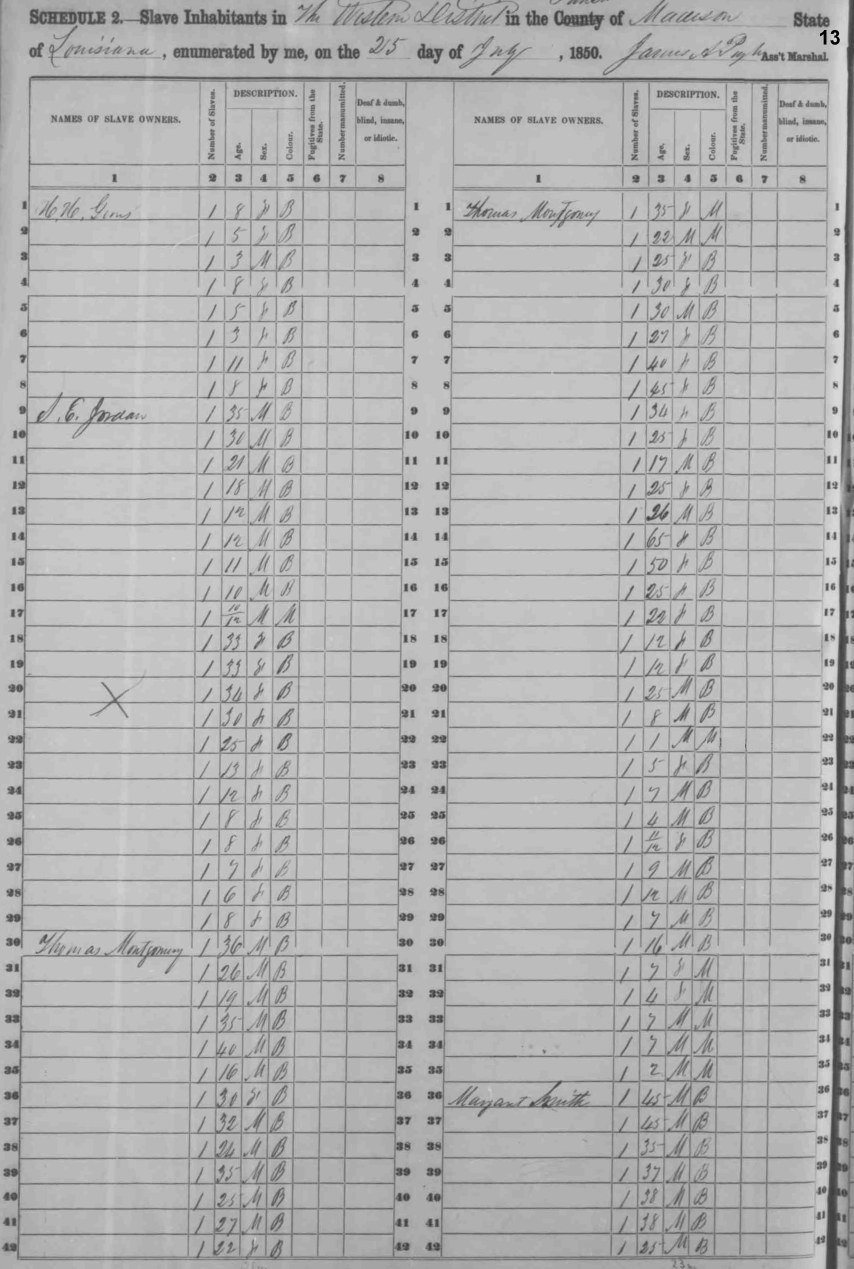 SCHEDULE 2.—Slave Inhabitants in The Western District in the County of Madison State
13
of Louisiana, enumerated by me, on the 25 day of July, 1850. James A Ass't Marshal.
NAMES OF SLAVE OWNERS. Number of Slaves. DESCRIPTION. Age. Sex. Colour. Fugitives from the State. Number manumitted. Deaf & dumb, blind, insane, or idiotic. NAMES OF SLAVE OWNERS. Number of Slaves. DESCRIPTION. Age. Sex. Colour. Fugitives from the State. Number manumitted. Deaf & dumb, blind, insane, or idiotic.
1 2 3 4 5 6 7 8 1 2 3 4 5 6 7 8
1 H. H. 1 8 f B 1
2 1 5 f B 2
3 1 3 M B 3
4 1 8 f B 4
5 1 5 f B 5
6 1 3 f B 6
7 1 11 f B 7
8 1 8 f B 8
9 S. E. Jordan 1 35 M B 9
10 1 30 M B 10
11 1 21 M B 11
12 1 18 M B 12
13 1 12 M B 13
14 1 12 M B 14
15 1 11 M B 15
16 1 10 M B 16
17 1 10/12 M M 17
18 1 33 f B 18
19 1 33 f B 19
20 1 34 f B 20
21 1 30 f B 21
22 1 25 f B 22
23 1 13 f B 23
24 1 12 f B 24
25 1 8 f B 25
26 1 8 f B 26
27 1 7 f B 27
28 1 6 f B 28
29 1 8 f B 29
30 Thomas Montgomery 1 36 M B 30
31 1 26 M B 31
32 1 19 M B 32
33 1 35 M B 33
34 1 40 M B 34
35 1 16 M B 35
36 1 30 f B 36
37 1 32 M B 37
38 1 24 M B 38
39 1 35 M B 39
40 1 25 M B 40
41 1 27 M B 41
42 1 22 f B 42
1 Thomas Montgomery 1 35 f M 1
2 1 22 M M 2
3 1 25 f B 3
4 1 30 f B 4
5 1 30 M B 5
6 1 27 f B 6
7 1 40 f B 7
8 1 45 f B 8
9 1 34 f B 9
10 1 25 f B 10
11 1 17 M B 11
12 1 25 f B 12
13 1 26 M B 13
14 1 65 f B 14
15 1 50 f B 15
16 1 25 f B 16
17 1 22 f B 17
18 1 12 f B 18
19 1 12 f B 19
20 1 25 M B 20
21 1 8 M B 21
22 1 1 M M 22
23 1 5 f B 23
24 1 7 M B 24
25 1 4 M B 25
26 1 11/12 f B 26
27 1 9 M B 27
28 1 12 M B 28
29 1 7 M B 29
30 1 16 M B 30
31 1 7 f M 31
32 1 4 f M 32
33 1 7 M M 33
34 1 7 M M 34
35 1 2 M M 35
36 Margant Smith 1 45 M B 36
37 1 45 M B 37
38 1 35 M B 38
39 1 37 M B 39
40 1 38 M B 40
41 1 38 M B 41
42 1 25 M B 42